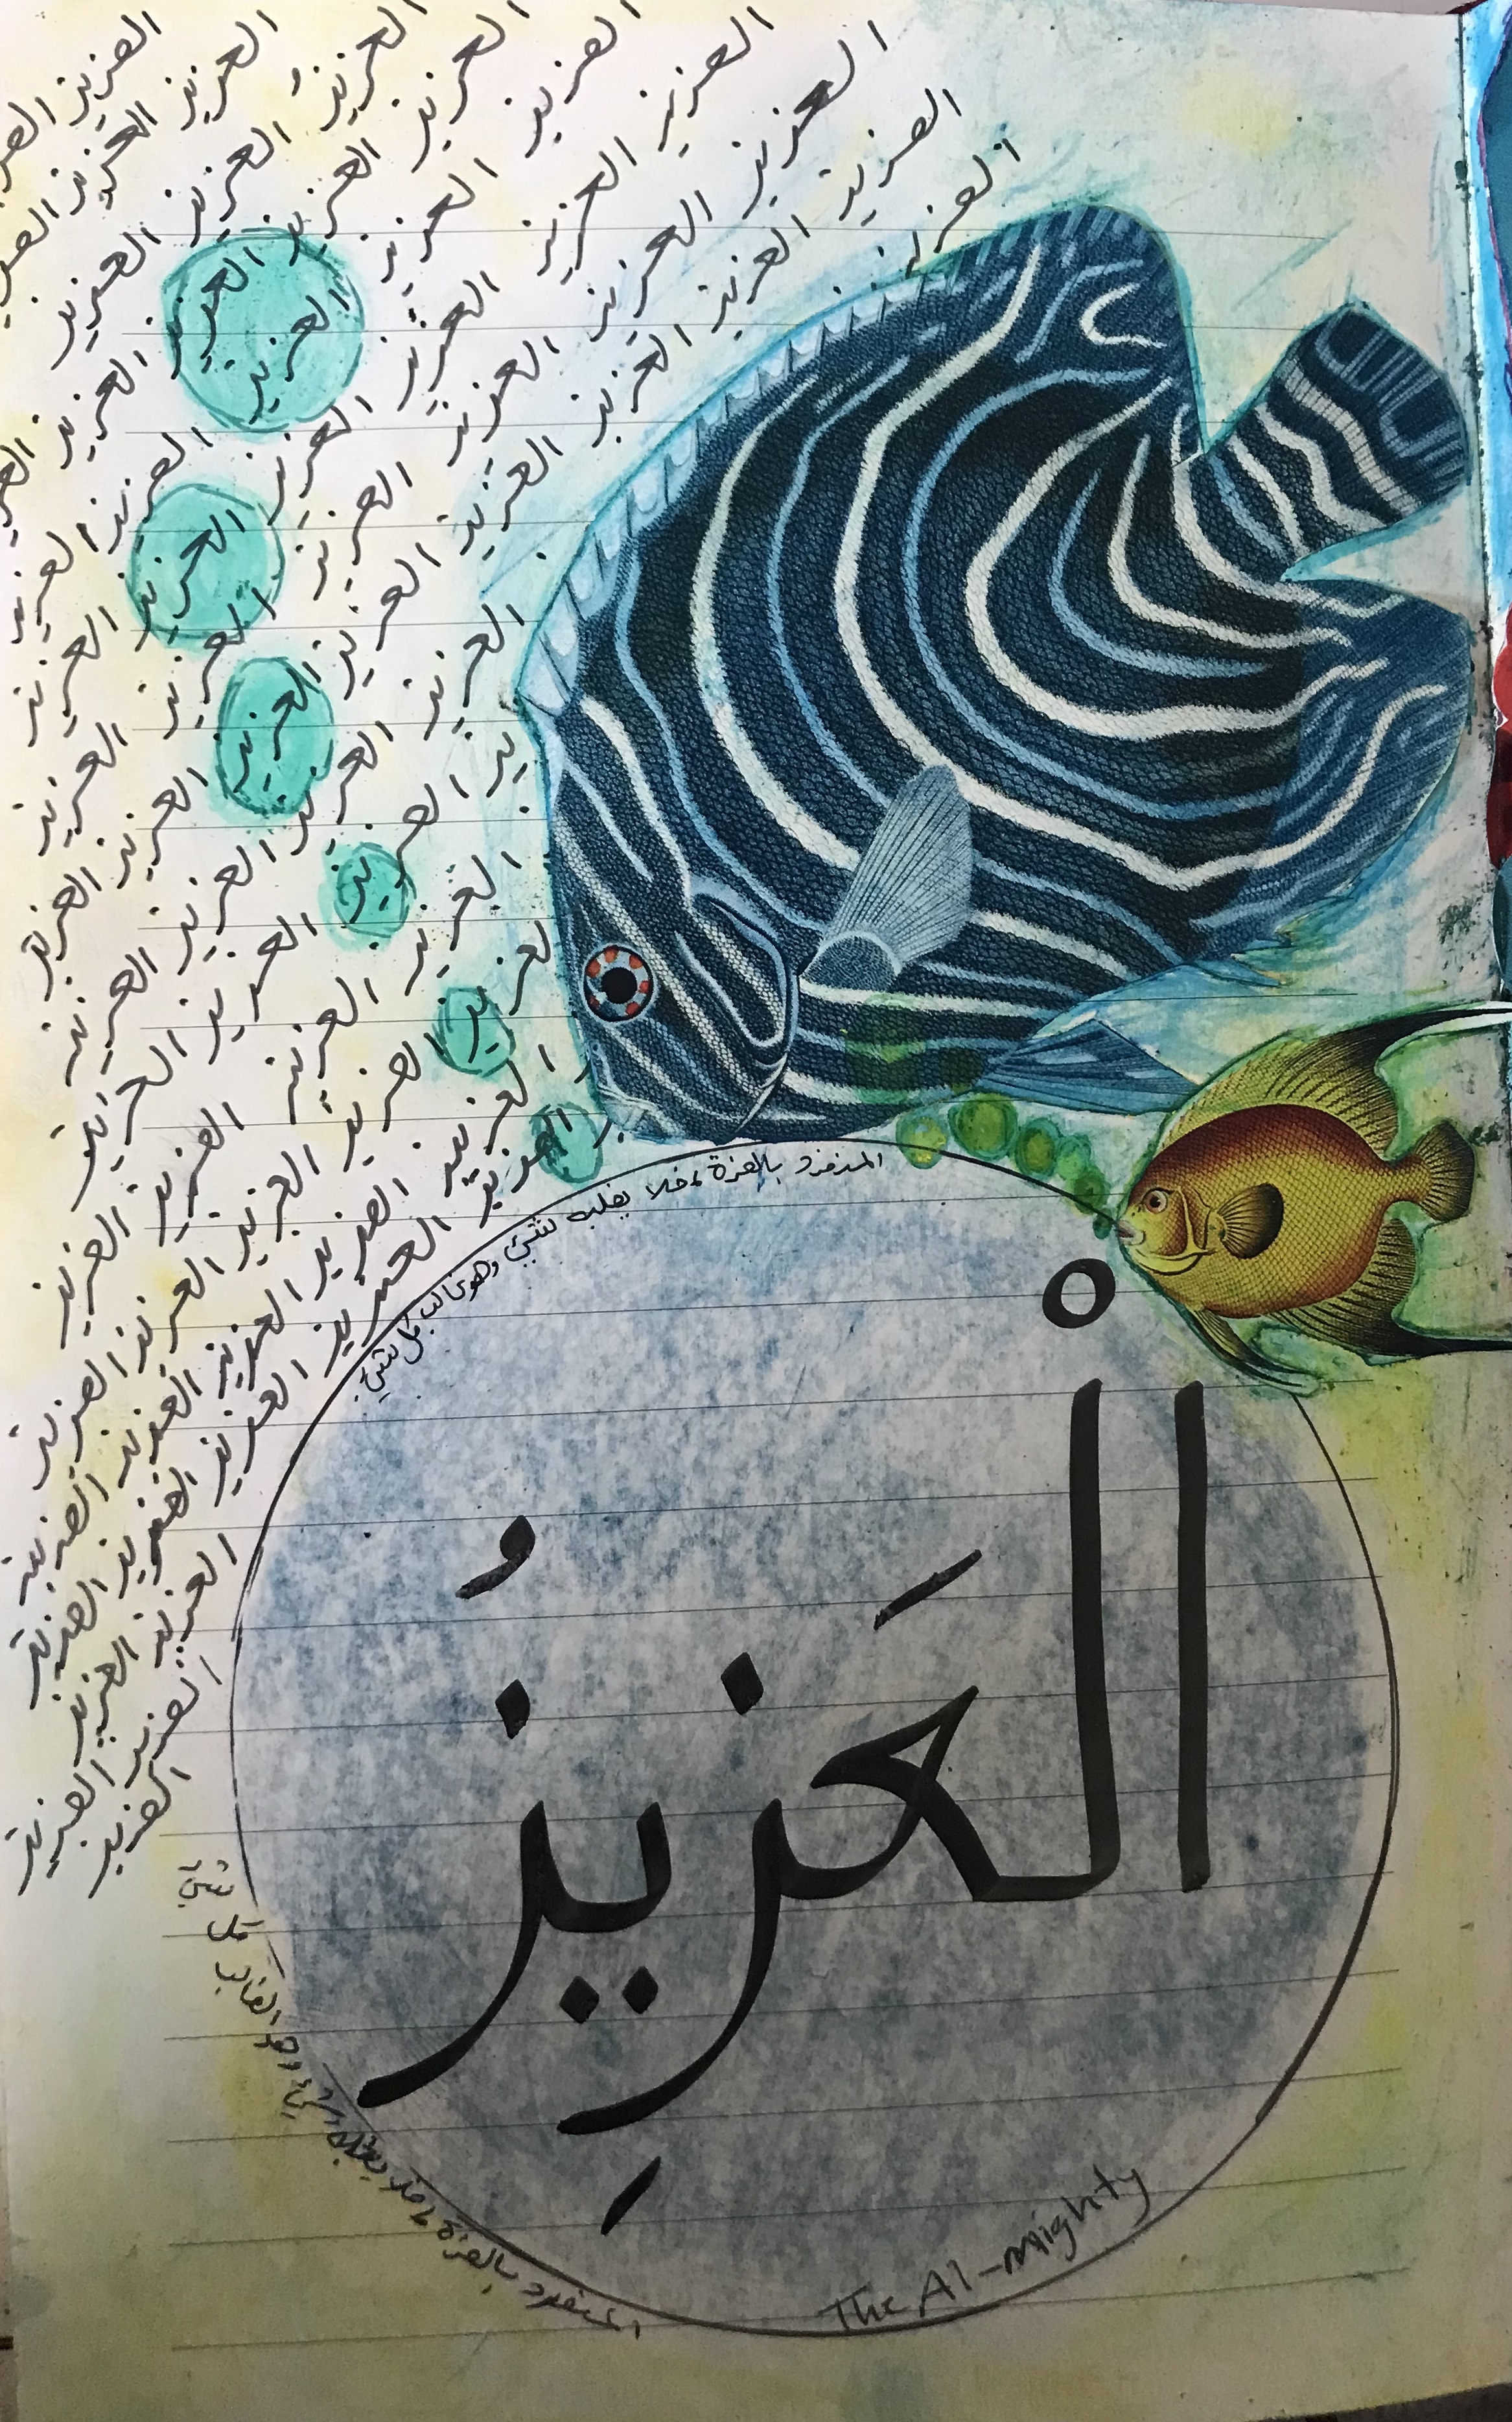 العزيز العزيز
العزيز العزيز العزيز
العزيز العزيز العزيز العزيز
العزيز العزيز العزيز العزيز العزيز
العزيز العزيز العزيز العزيز العزيز
العزيز العزيز العزيز العزيز العزيز العزيز
العزيز العزيز العزيز العزيز العزيز العزيز
العزيز العزيز العزيز العزيز العزيز العزيز
العزيز العزيز العزيز العزيز العزيز العزيز
العزيز العزيز العزيز العزيز العزيز
العزيز العزيز العزيز العزيز العزيز
العزيز العزيز العزيز العزيز
العزيز العزيز العزيز العزيز
العزيز العزيز العزيز
العزيز العزيز
المنفرد بالعزة فلا يغلبه شيئ وهو غالب كل شيئ
الْعَزِيزُ
The Al-mighty
المنفرد بالعزة فلا يغلبه شيئ وهو الغالب كل شيئ